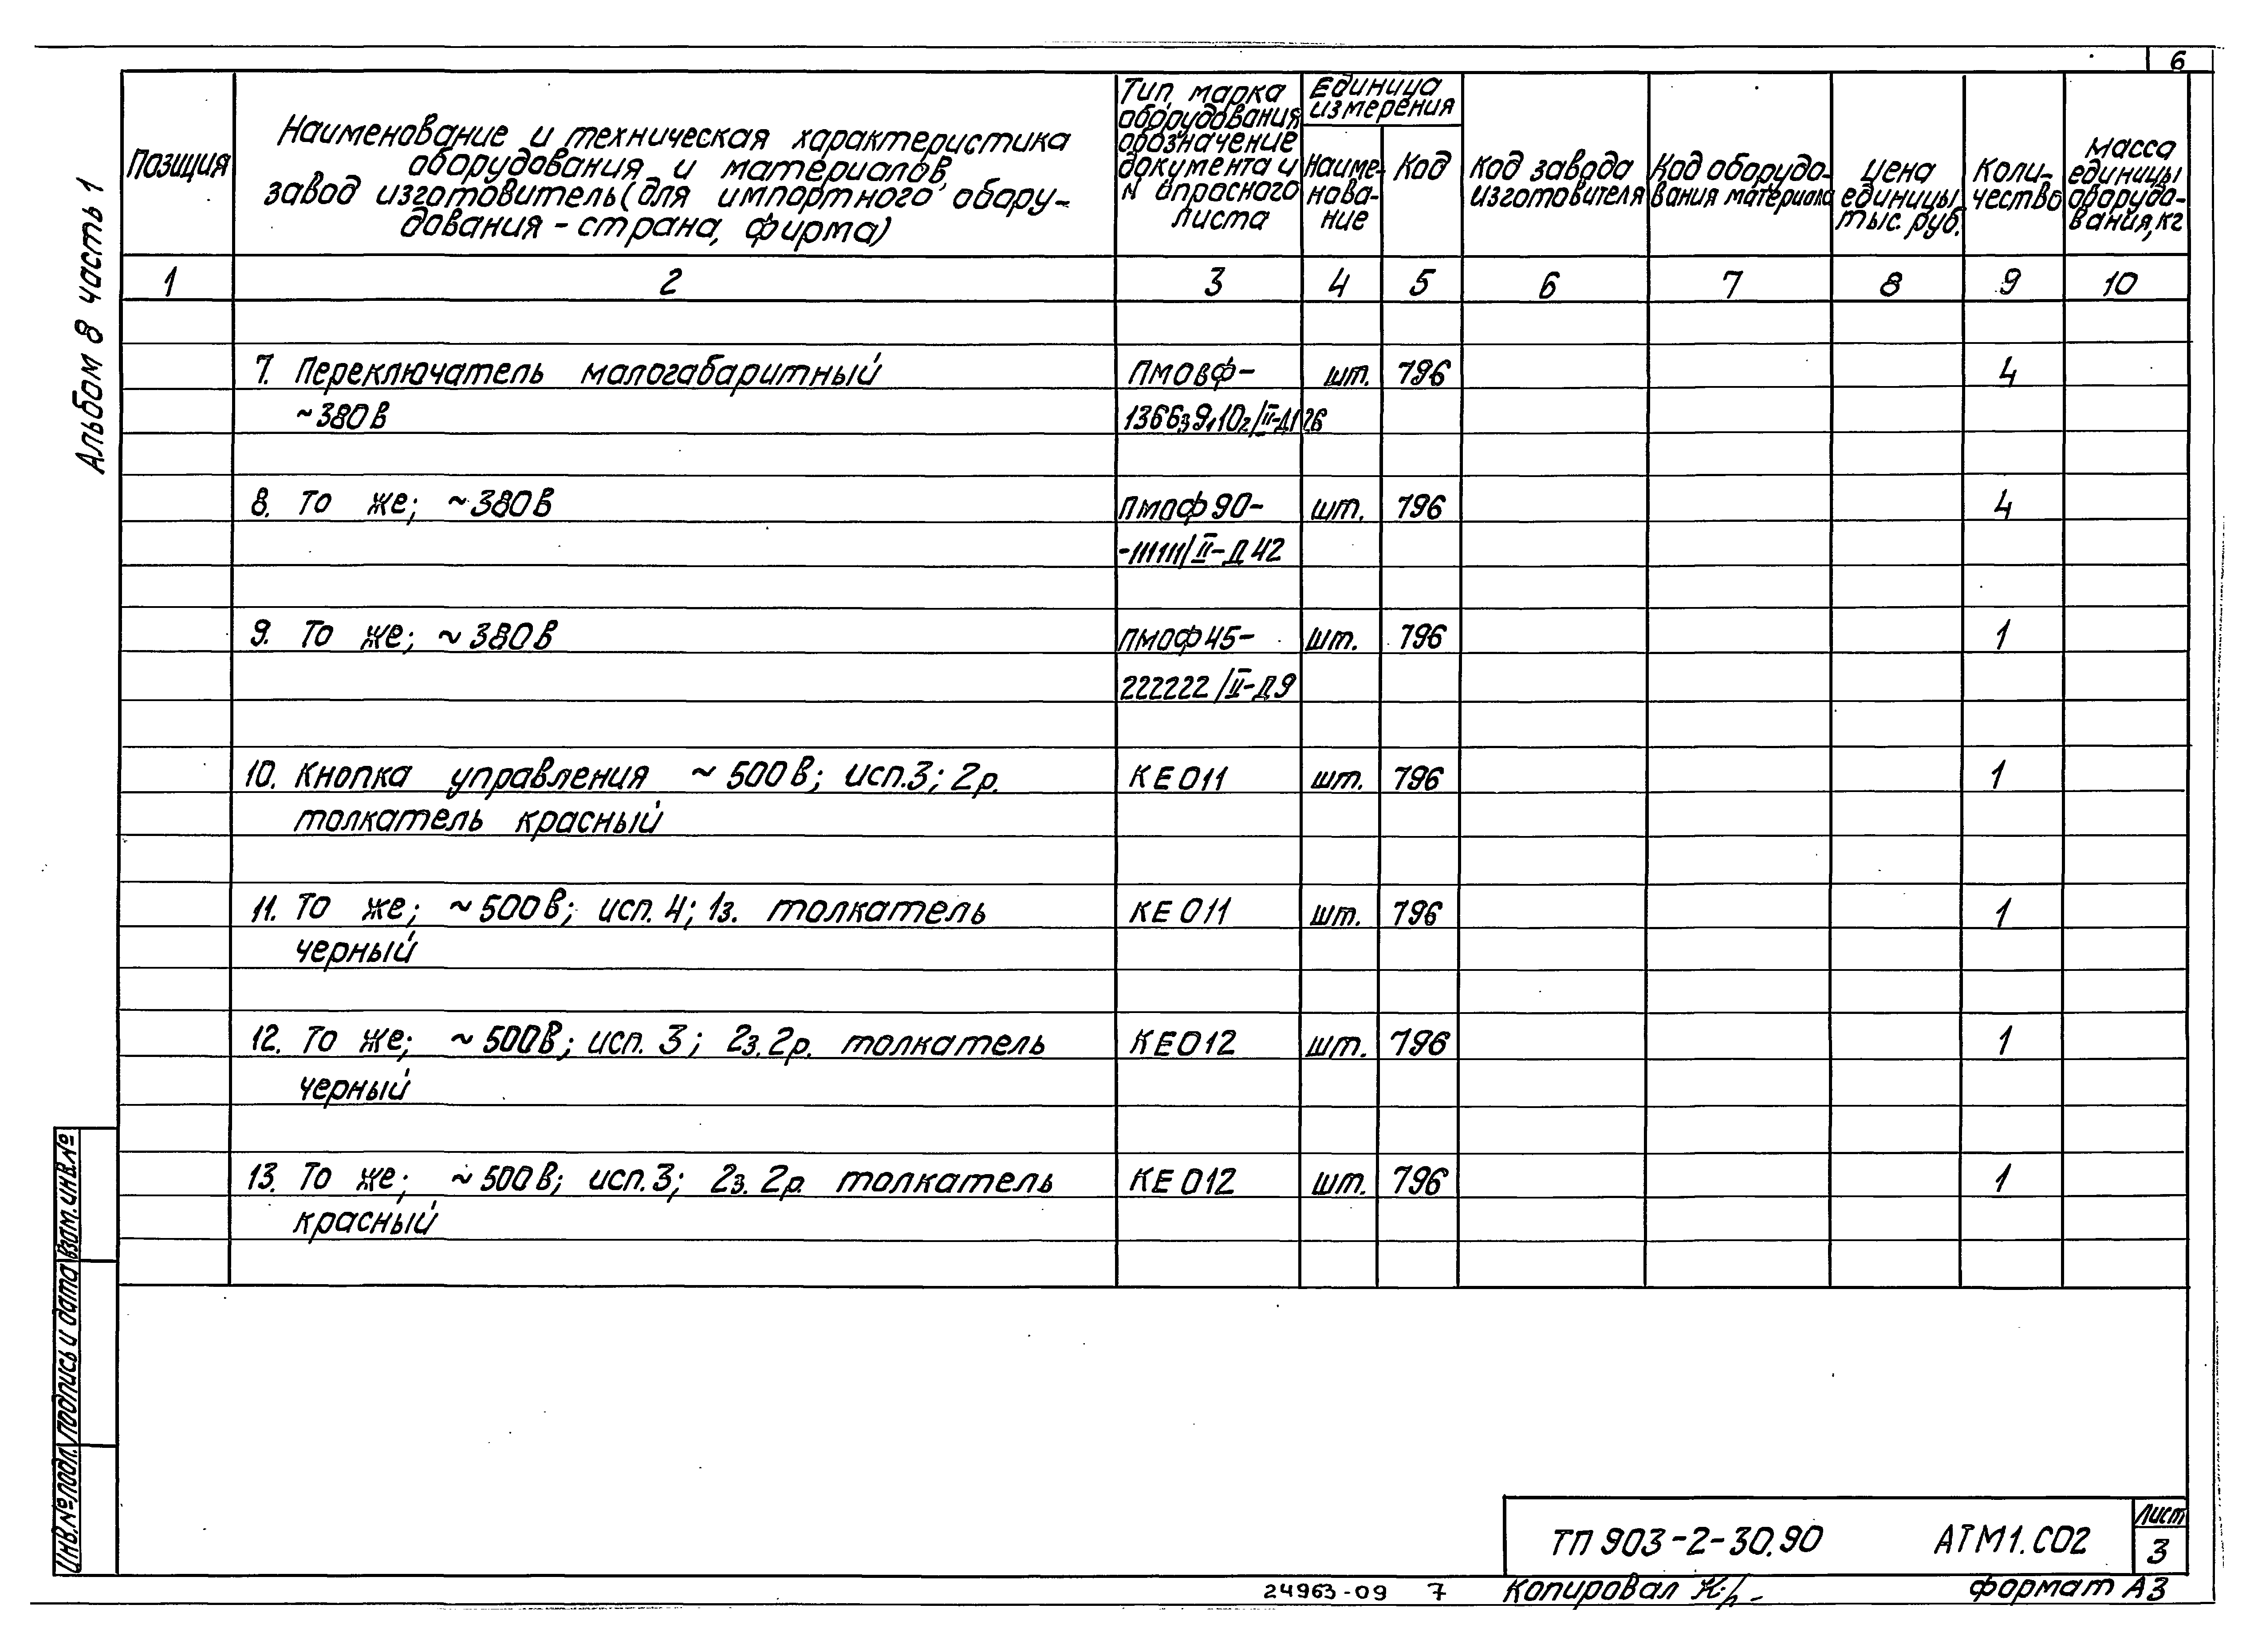 6
Альбом 8 часть 1
Позиция
Наименование и техническая характеристика
оборудования и материалов
завод изготовитель (для импортного обору-
дования - страна, фирма)
Тип, марка
оборудования
обозначение
документа и
N опросного
листа
Единица
измерения
Наиме-
нова-
ние
Код
Код завода
изготовителя
Код оборудо-
вания материала
Цена
единицы
тыс. руб.
Коли-
чество
Масса
единицы
оборудо-
вания, кг
1 2 3 4 5 6 7 8 9 10
7. Переключатель малогабаритный ПМОВФ- шт. 796 4
~380В 1366з9,10г/II-Д126
8. То же; ~380В ПМОФ90- шт. 796 4
-111111/II-Д42
9. То же; ~380В ПМОФ45- шт. 796 1
222222/II-Д9
10. Кнопка управления ~500В; исп.3; 2р. КЕ011 шт. 796 1
толкатель красный
11. То же; ~500В; исп. 4; 1з. толкатель КЕ011 шт. 796 1
черный
12. То же; ~500В; исп. 3; 2з. 2р. толкатель КЕ012 шт. 796 1
черный
13. То же; ~500В; исп.3; 2з. 2р. толкатель КЕ012 шт. 796 1
красный
Инв.№подл. Подпись и дата Взам.инв.№
ТП 903-2-30.90 АТМ1.СО2
Лист
3
24963-09 7 Копировал Формат А3